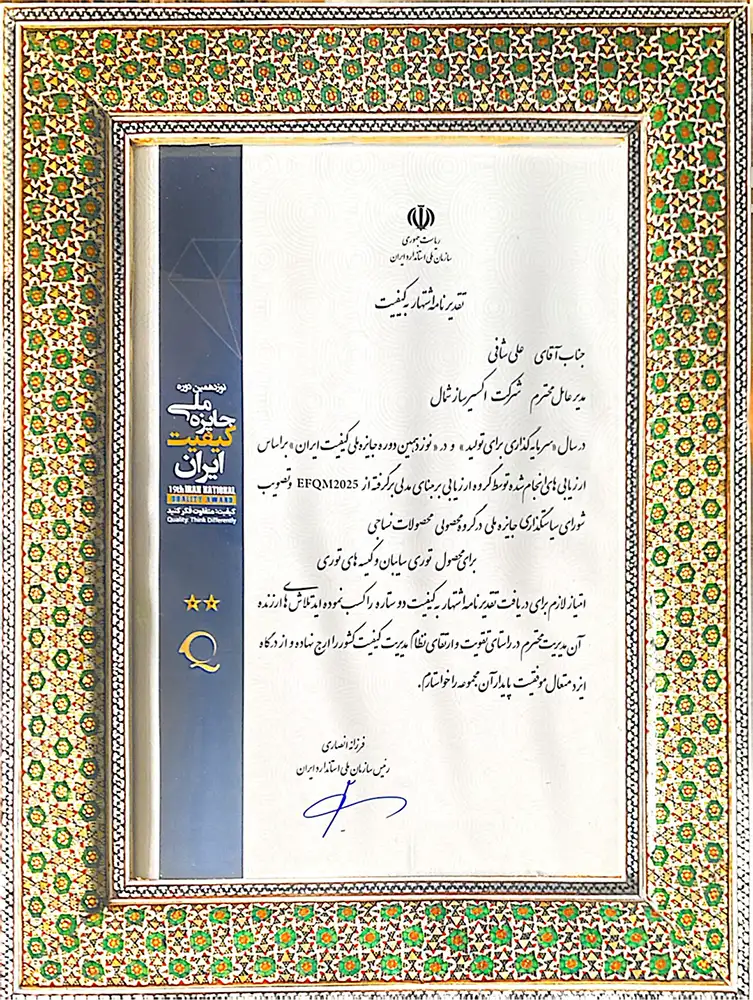 ریاست جمهوری
سازمان ملی استاندارد ایران
تقدیرنامه اشتهار به کیفیت
جناب آقای علی شافی
مدیر عامل محترم شرکت اکسیر ساز شمال
در سال «سرمایه گذاری برای تولید» و در «نوزدهمین دوره جایزه ملی کیفیت ایران» براساس
ارزیابی های انجام شده توسط گروه ارزیابی بر مبنای مدلی برگرفته از EFQM2025 و تصویب
شورای سیاستگذاری جایزه ملی در گروه محصولی محصولات نساجی
برای محصول توری سایبان و کیسه های توری
امتیاز لازم برای دریافت تقدیرنامه اشتهار به کیفیت دو ستاره را کسب نموده اید تلاش های ارزنده
آن مدیریت محترم در راستای تقویت و ارتقای نظام مدیریت کیفیت کشور را ارج نهاده و از درگاه
ایزد متعال موفقیت پایدار آن مجموعه را خواستارم.
فرزانه انصاری
رئیس سازمان ملی استاندارد ایران
نوزدهمین دوره
جایزه ملی
کیفیت
ایران
19th IRAN NATIONAL
QUALITY AWARD
کیفیت؛ متفاوت فکر کنید
Quality: Think Differently